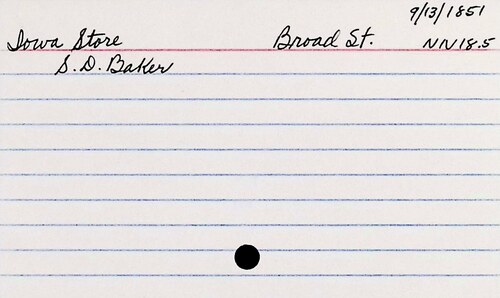 9/13/1851
Iowa Store Broad St. NN18.5
S. D. Baker